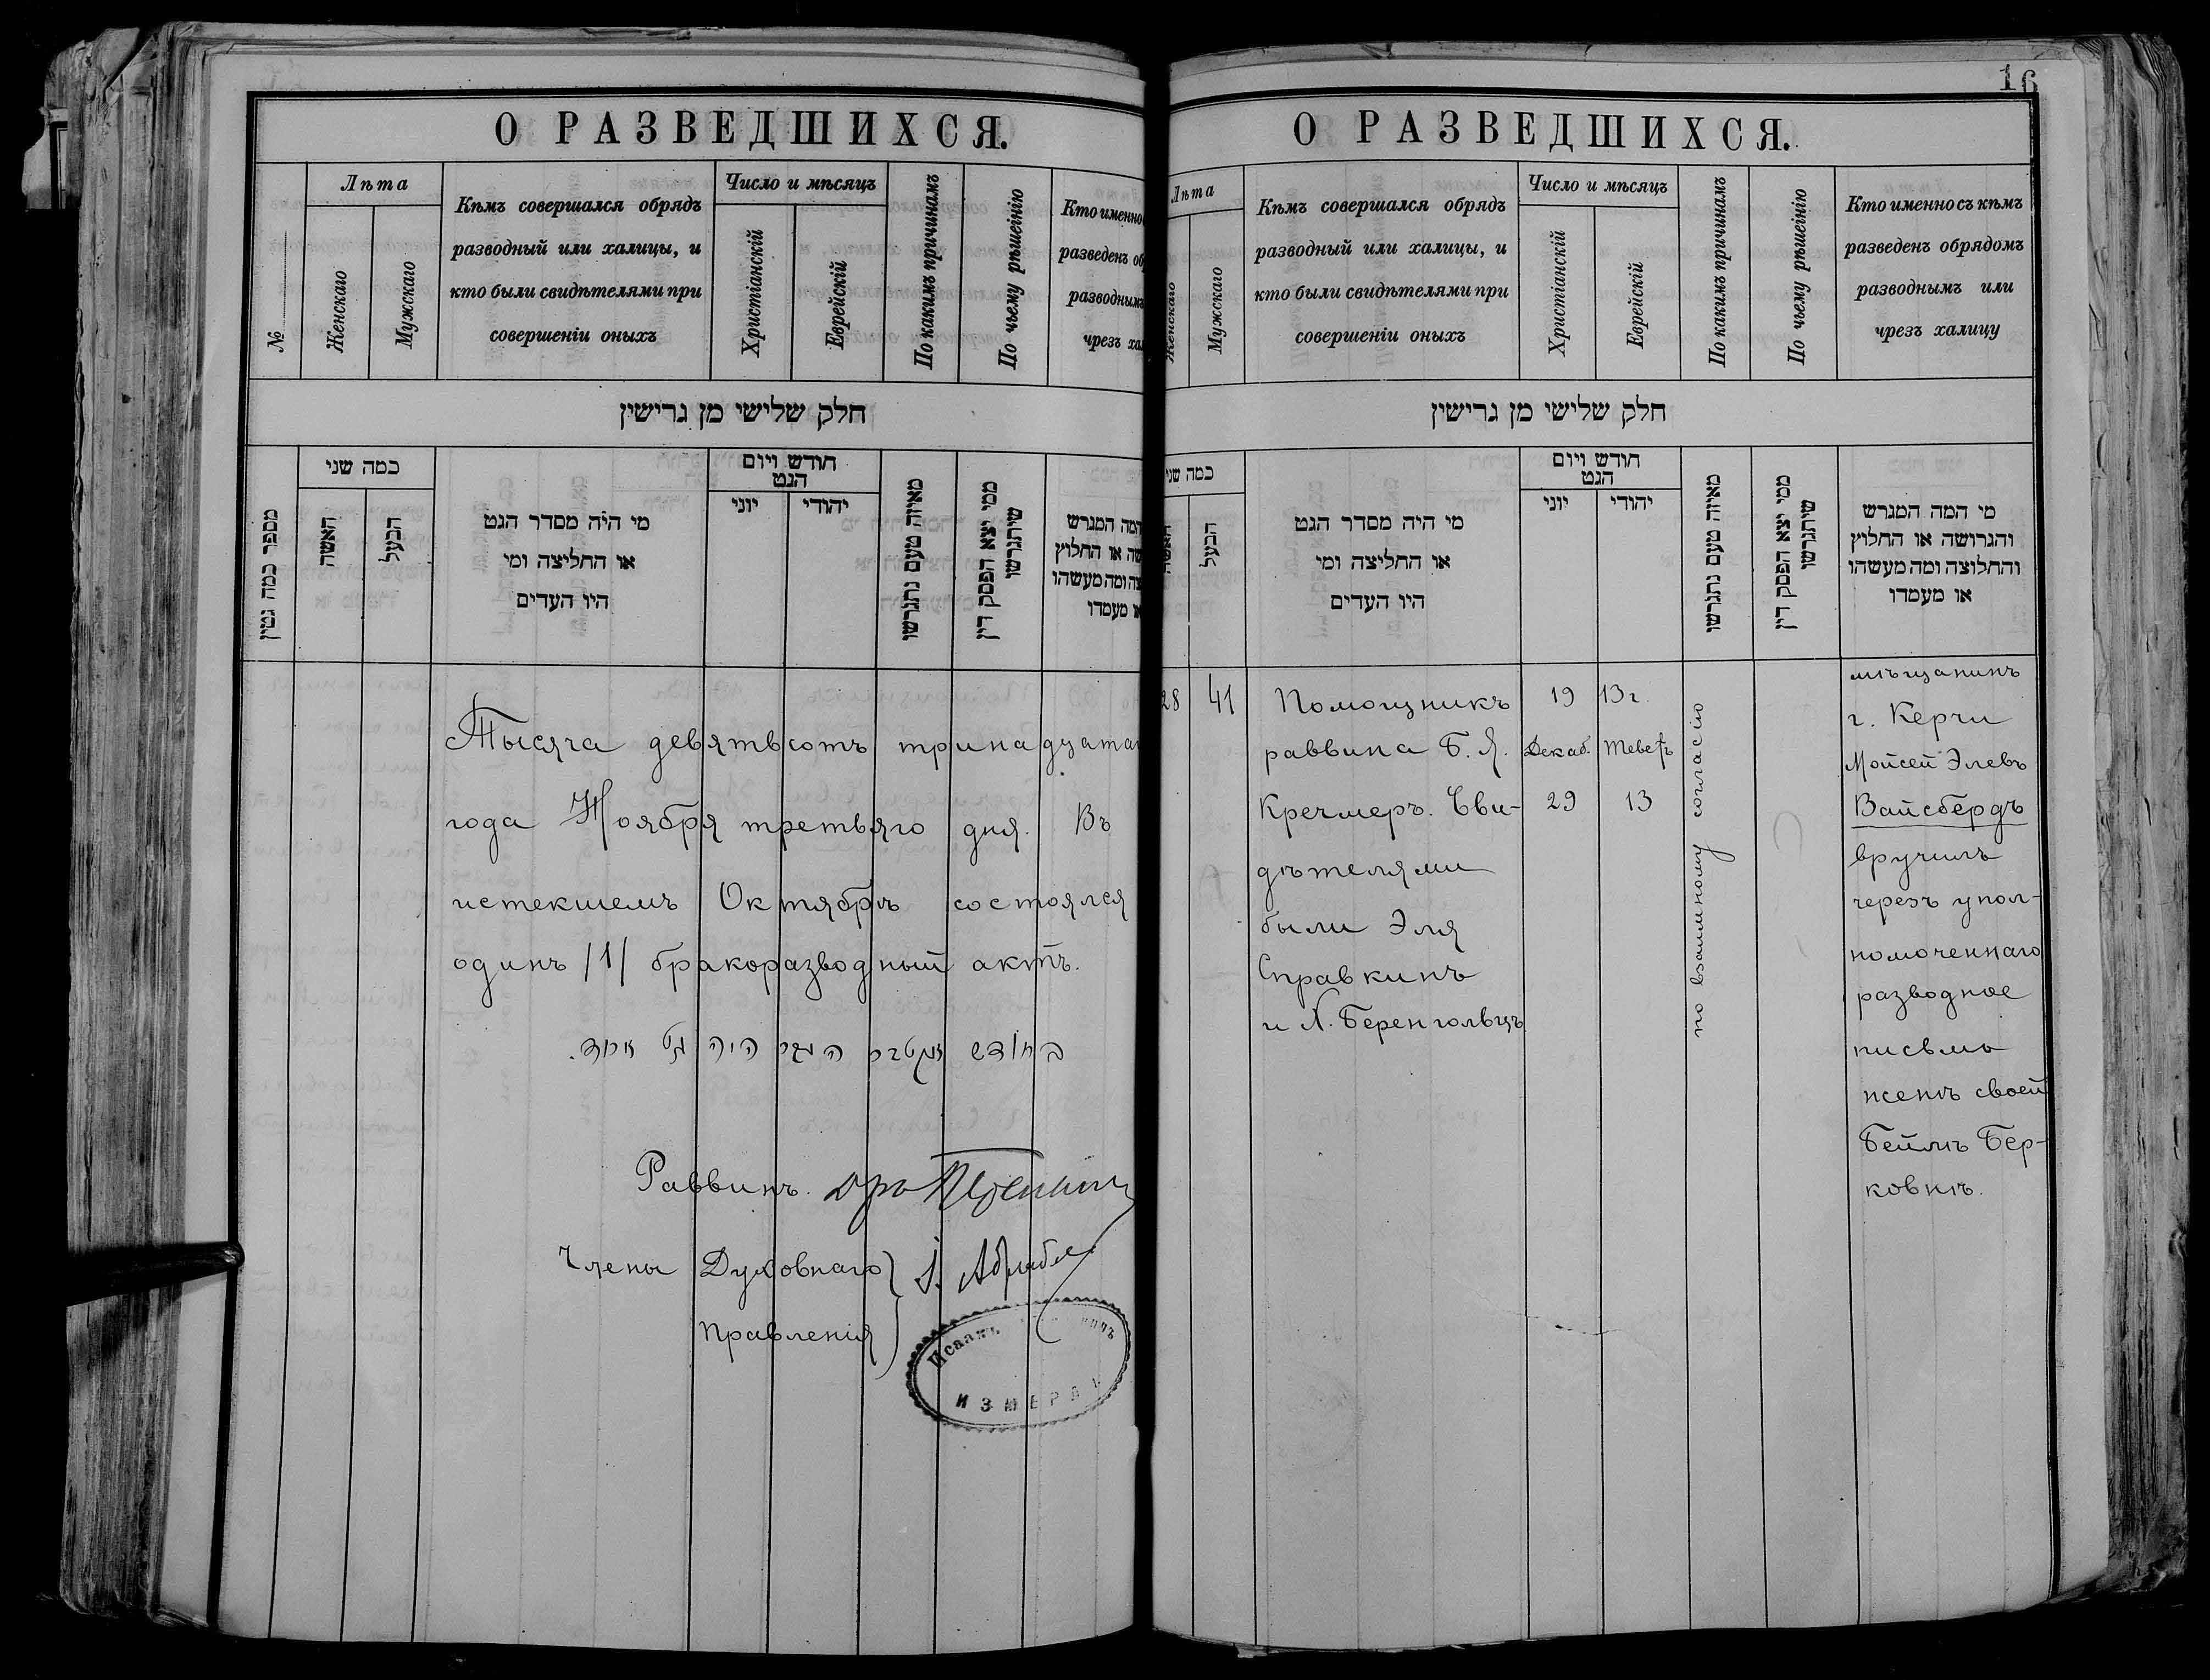 О РАЗВЕДШИХСЯ.
№
Лѣта
Женскаго
Мужскаго
Кѣмъ совершался обрядъ
разводный или халицы, и
кто были свидѣтелями при
совершеніи оныхъ
Число и мѣсяцъ
Христіанскій
Еврейскій
По какимъ причинамъ
По чьему рѣшенію
Кто именно
разведенъ об
разводнымъ
чрезъ хал
חלק שלישי מן גרישין
מספר כמה גטין
כמה שני
האשה
הבעל
מי היה מסדר הגט
או החליצה ומי
היו העדים
חודש ויום
הגט
יוני
יהודי
מאיזה טעם נתגרשו
ממי יצא הפסק דין
שיתגרשו
המה המגרש
שה או החלוץ
צה ומה מעשהו
או מעמדו
Тысяча девятьсотъ тринадцата
года Ноября третьяго дня. Въ
истекшемъ Октябрѣ состоялся
одинъ /1/ бракоразводный актъ.
בחודש אקטבר העבר היה גט אחד.
Раввинъ.
Члены Духовнаго
Правленія
Исаакъ
ИЗМЕРЛИ
16
О РАЗВЕДШИХСЯ.
Лѣта
Женскаго
Мужскаго
Кѣмъ совершался обрядъ
разводный или халицы, и
кто были свидѣтелями при
совершеніи оныхъ
Число и мѣсяцъ
Христіанскій
Еврейскій
По какимъ причинамъ
По чьему рѣшенію
Кто именно съ кѣмъ
разведенъ обрядомъ
разводнымъ или
чрезъ халицу
חלק שלישי מן גרישין
כמה שני
האשה
הבעל
מי היה מסדר הגט
או החליצה ומי
היו העדים
חודש ויום
הגט
יוני
יהודי
מאיזה טעם נתגרשו
ממי יצא הפסק דין
שיתגרשו
מי המה המגרש
והגרושה או החלוץ
והחלוצה ומה מעשהו
או מעמדו
28
41
Помощникъ
раввина Б. Я.
Кречмеръ. Сви-
дѣтелями
были Эля
Справкинъ
и Х. Беренгольцъ
19 13 г.
Декаб. Теветъ
29 13
по взаимному согласію
мѣщанинъ
г. Керчи
Мойсей Элевъ
Вайсбердъ
вручилъ
черезъ упол-
номоченнаго
разводное
письмо
женѣ своей
Бейлѣ Бер-
ковнѣ.